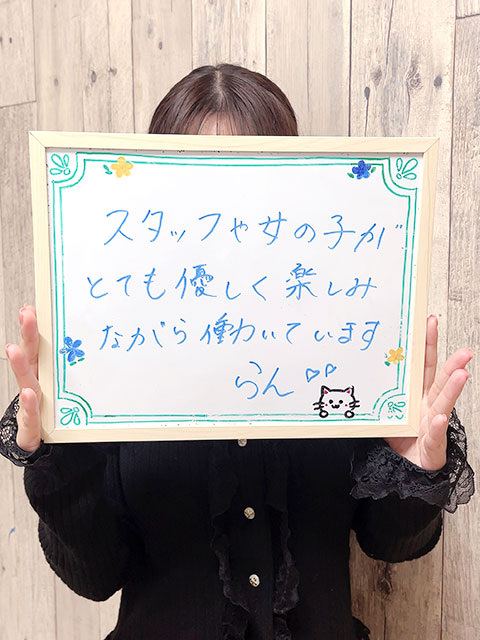 スタッフや女の子が
とても優しく楽しみ
ながら働いています
らん♡♡